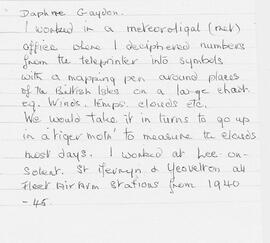 Daphne Gaydon.
I worked in a meteoroligal (met)
office where I deciphered numbers
from the teleprinter into symbols
with a mapping pen around places
of the British Isles on a large chart
eg. Winds. temps. clouds etc.
We would take it in turns to go up
in a 'tiger moth' to measure the clouds
most days. I worked at Lee-on-
Solent. St Mervyn & Yeovelton all
Fleet Air Arm Stations from 1940
-45.